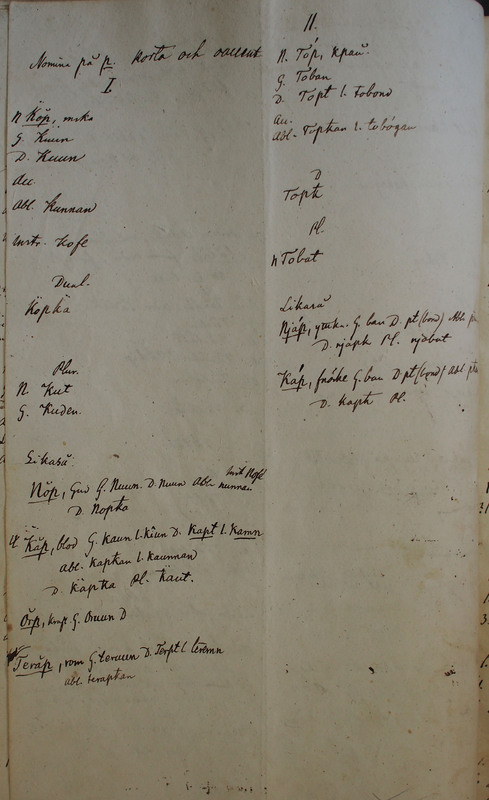 Nomina på p. korta och oaccent
I.
N Kŏp, mske
G. Kuun
D. Kuun
Acc
Abl. Kunnan
Instr. Kofe
Dual.
Kopka
Plur.
N. Kut
G. Kuden.
Likaså
Nŏp, Gud G. Nuun. D. nuun Abl. nunnan Instr Nofe
D. Nopka
Kăp, blod G. Kaun l. Kíun D. Kapt l. Kamn
abl. Kapkan l. Kaunnan
D. Kapka Pl. Kaut.
Ŏrp, kraft G. Oruun D
Terăp, rom G. teruun D. Terpt l. teremn
abl. terapkan
II.
N. Tóp, край
G. Toban
D. Topt l. tobond
Acc.
Abl. Topkan l. tobógan
D
Topk
Pl.
N Tobat
Likaså
Njáp, G. ban D. pt (bond) Abl.
D. njapk Pl. njabat
Káp, G. ban D. pt (bond) Abl.
D. kapk Pl.